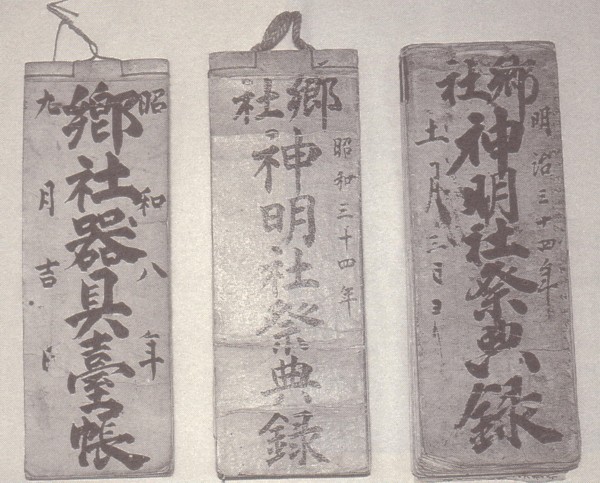 明治三十四年
郷社
神明社祭典録
十一月三日ヨリ
昭和三十四年
郷社
神明社祭典録
昭和八年
郷社器具臺帳
九月吉日